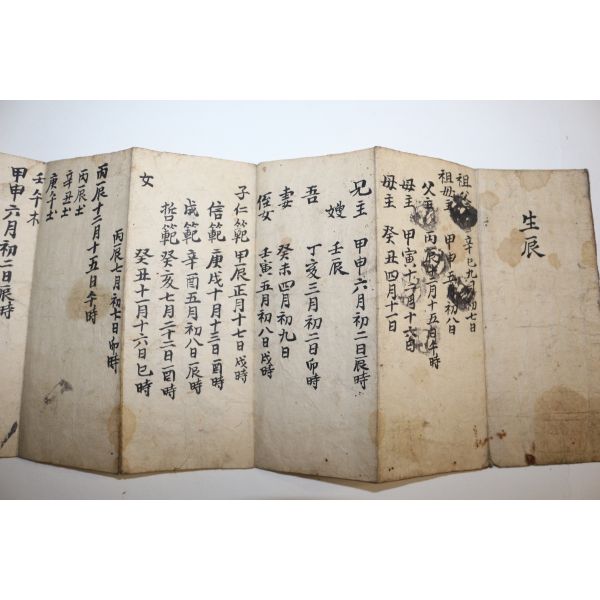 生辰
祖父 辛巳九月初七日
祖母主 甲申五月初八日
父主 丙辰十二月十五日午時
母主 甲寅十二月十六日
母主 癸丑四月十一日
兄主 甲申六月初二日辰時
嫂 壬辰
吾 丁亥三月初二日卯時
妻 癸未四月初九日
侄女 壬寅五月初八日戌時
子仁範 甲辰正月十七日戌時
信範 庚戌十月十三日酉時
成範 辛酉五月初八日辰時
哲範 癸亥七月二十二日酉時
女 癸丑十一月十六日巳時
丙辰七月初七日卯時
丙辰十二月十五日午時
丙辰土
辛丑土
庚午土
壬午木
甲申六月初二日辰時